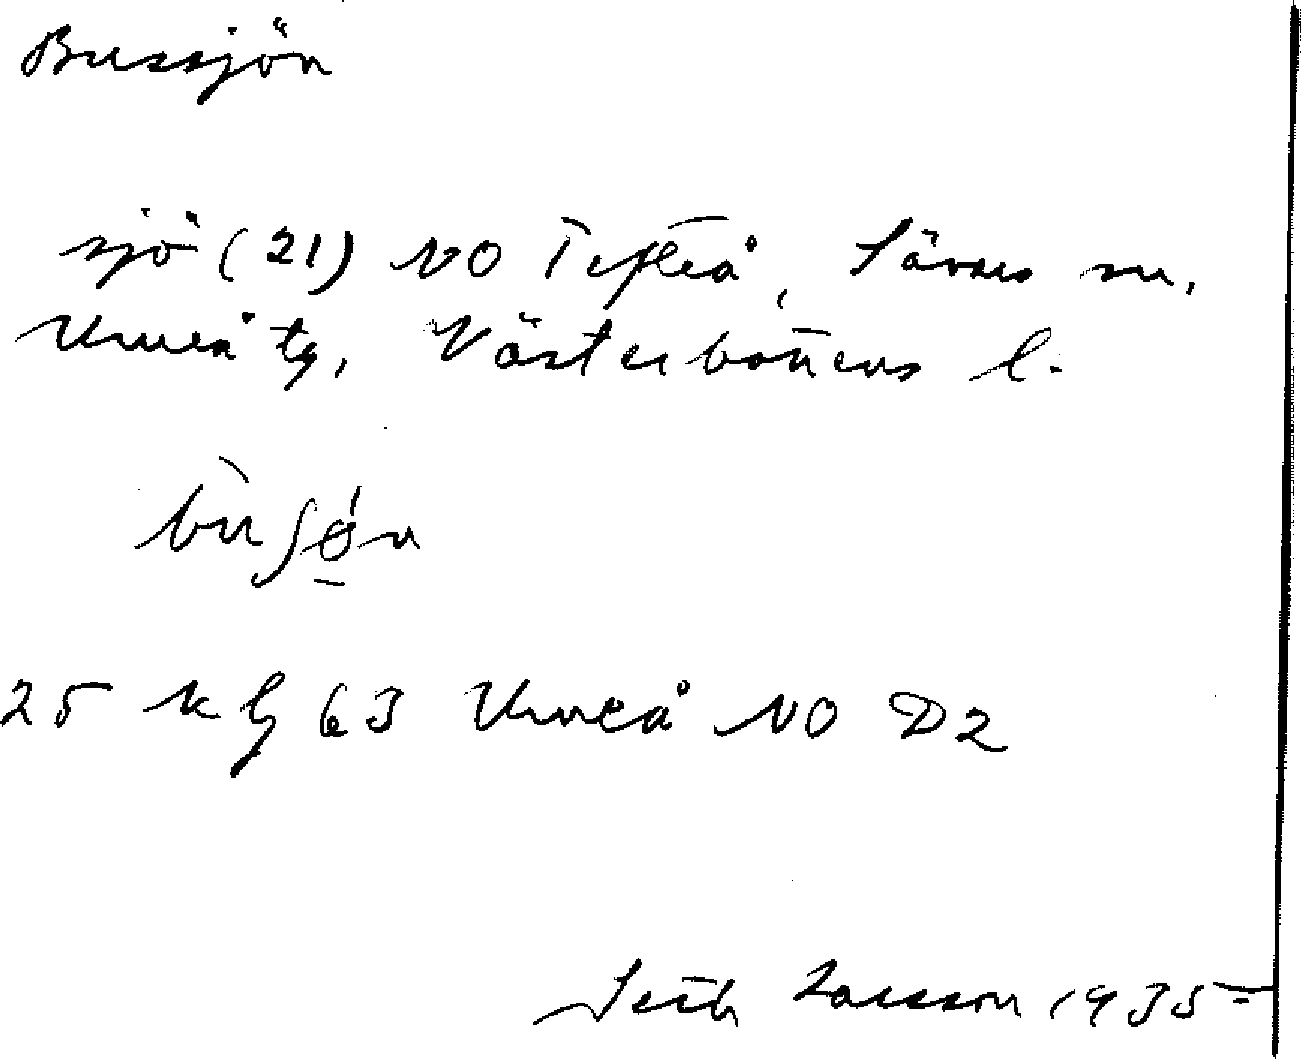 Bussjön
sjö (21) NO Tefteå, Sävars sn,
Umeå tg, Västerbottens l.
bùʃǿ̱n
25 k lj 63 Umeå NO D2
Seth Larsson 1935